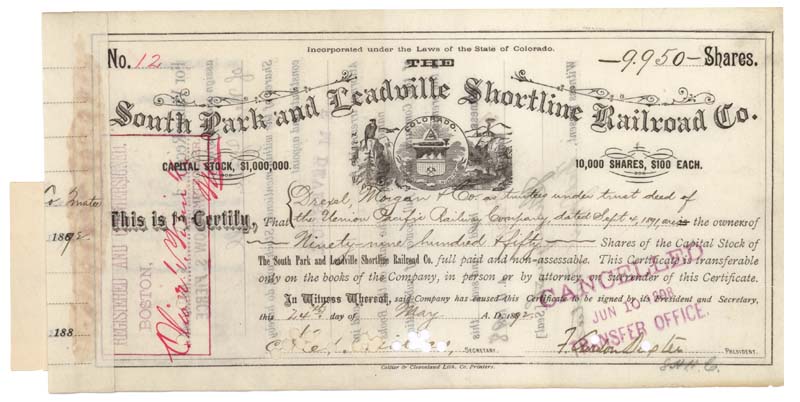 Incorporated under the Laws of the State of Colorado.
No. 12
—9950— Shares.
THE
South Park and Leadville Shortline Railroad Co.
COLORADO.
CAPITAL STOCK, $1,000,000.
10,000 SHARES, $100 EACH.
Drexel, Morgan & Co. as trustees under trust deed of
This is to Certify, That the Union Pacific Railway Company, dated Sept 4, 1891, are the owners of
Ninety-nine hundred & fifty Shares of the Capital Stock of
The South Park and Leadville Shortline Railroad Co. full paid and non-assessable. This Certificate is transferable
only on the books of the Company, in person or by attorney on surrender of this Certificate.
In Witness Whereof, said Company has caused this Certificate to be signed by its President and Secretary,
this 24th day of May A. D. 1892
SECRETARY.
PRESIDENT.
Collier & Cleaveland Lith. Co. Printers.
CANCELLED
JUN 10 1898
TRANSFER OFFICE.
REGISTERED AND
BOSTON,
188